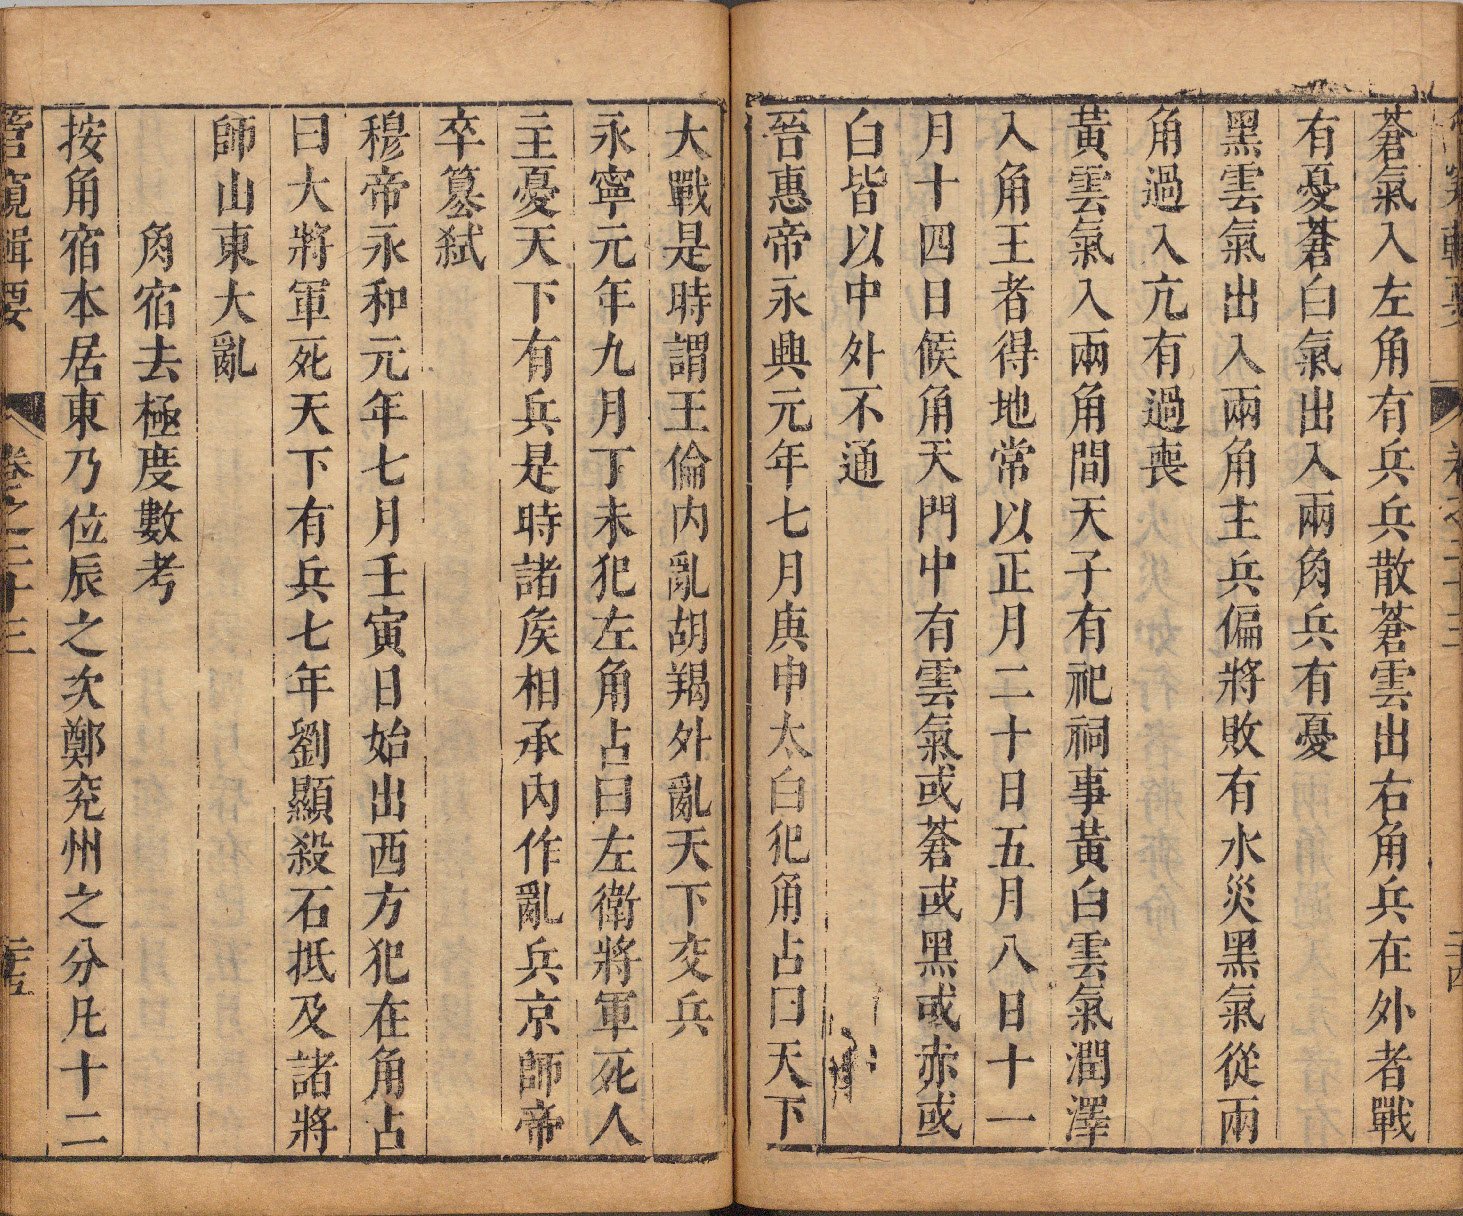 蒼氣入左角有兵兵散蒼雲出右角兵在外者戰
有憂蒼白氣出入兩角兵有憂
黑雲氣出入兩角主兵偏將敗有水災黑氣從兩
角過入亢有過喪
黃雲氣入兩角間天子有祀祠事黃白雲氣潤澤
入角王者得地常以正月二十日五月八日十一
月十四日候角天門中有雲氣或蒼或黑或赤或
白皆以中外不通
晉惠帝永興元年七月庚申太白犯角占曰天下
大戰是時謂王倫內亂胡羯外亂天下交兵
永寧元年九月丁未犯左角占曰左衛將軍死人
主憂天下有兵是時諸矦相承內作亂兵京師帝
卒簒弒
穆帝永和元年七月壬寅日始出西方犯在角占
曰大將軍死天下有兵七年劉顯殺石抵及諸將
師山東大亂
角宿去極度數考
按角宿本居東乃位辰之次鄭兖州之分凡十二
管窺輯要 卷之二十三 二十五